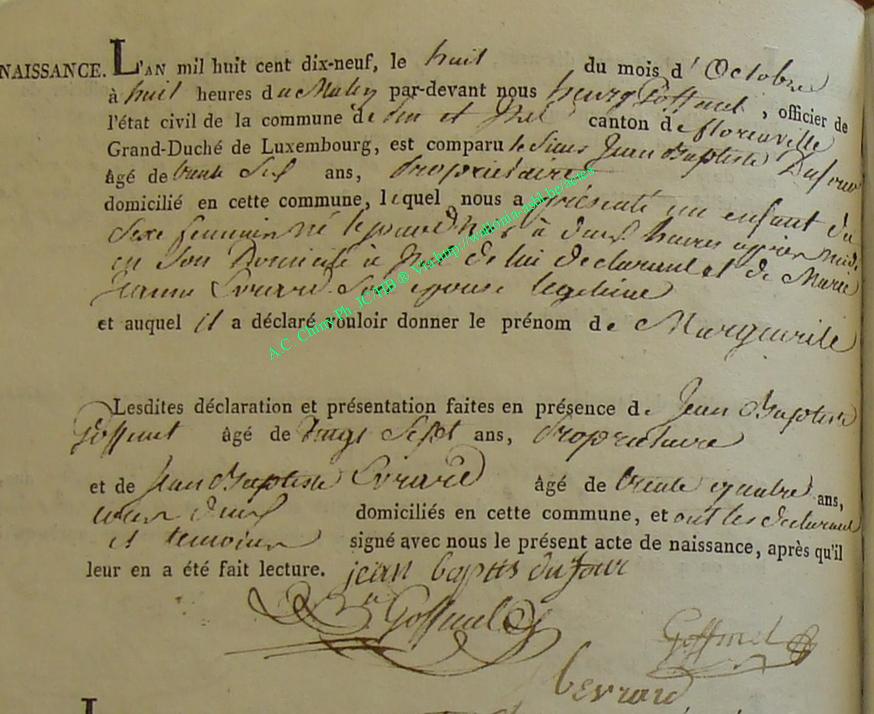 NAISSANCE. L'AN mil huit cent dix-neuf, le huit du mois d' Octobre
à huit heures du Matin par-devant nous Goffinet, officier de
l'état civil de la commune de et canton de florenville
Grand-Duché de Luxembourg, est comparu le Sieur Jean Baptiste Dufour
âgé de trente Sept ans, Propriétaire
domicilié en cette commune, lequel nous a présenté un enfant du
Sexe feminin né le à heures après midi
en Son Domicile à de lui declarant et de Marie
Jeanne Evrard Son epouse legitime
et auquel il a déclaré vouloir donner le prénom de Marguerite
A.C Chiny Ph JC/HB ® Vis http://wallonia-add.be/actes
Lesdites déclaration et présentation faites en présence de Jean Baptiste
Goffinet âgé de Vingt Sept ans, Propriétaire
et de Jean Baptiste Evrard âgé de trente quatre ans,
domiciliés en cette commune, et ont les declarant
et temoins signé avec nous le présent acte de naissance, après qu'il
leur en a été fait lecture. jean baptis dufour
Goffinet Goffinet
evrard
L